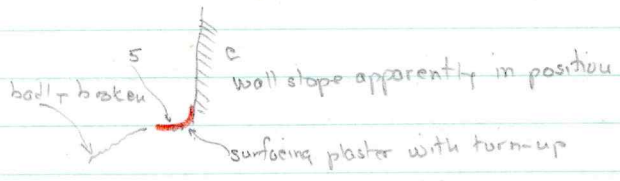 5
c
wall slope apparently in position
badly broken
surfacing plaster with turn-up